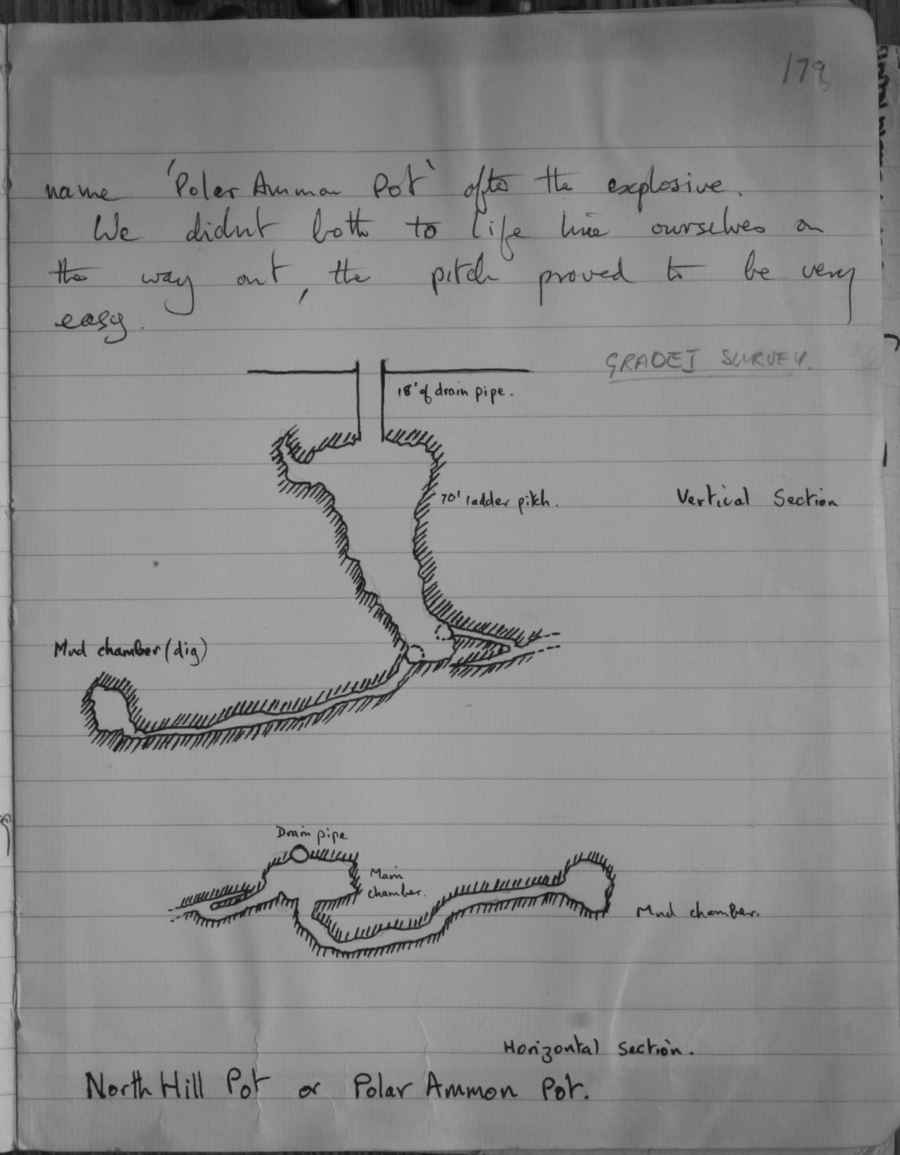 179
name 'Polar Ammon Pot' after the explosive.
We didnt bother to life line ourselves on
the way out, the pitch proved to be very
easy.
GRADE I SURVEY.
18' of drain pipe.
70' ladder pitch.
Vertical Section
Mud chamber (dig)
Drain pipe
Main
chamber.
Mud chamber.
Horizontal Section.
North Hill Pot or Polar Ammon Pot.